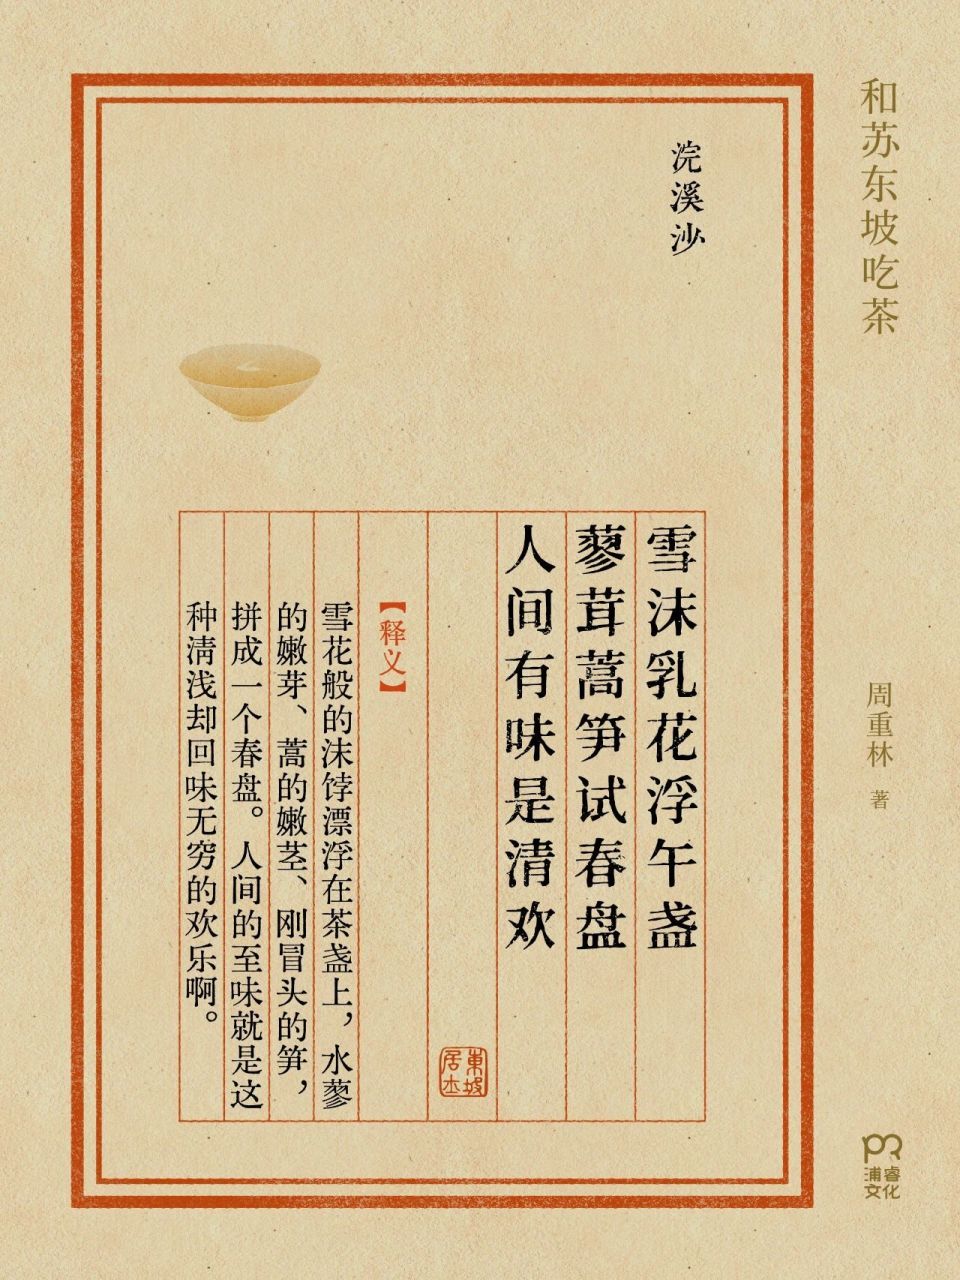 和苏东坡吃茶
周重林 著
浣溪沙
雪沫乳花浮午盏
蓼茸蒿笋试春盘
人间有味是清欢
東坡
居士
【释义】
雪花般的沫饽漂浮在茶盏上，水蓼
的嫩芽、蒿的嫩茎、刚冒头的笋，
拼成一个春盘。人间的至味就是这
种清浅却回味无穷的欢乐啊。
浦睿
文化